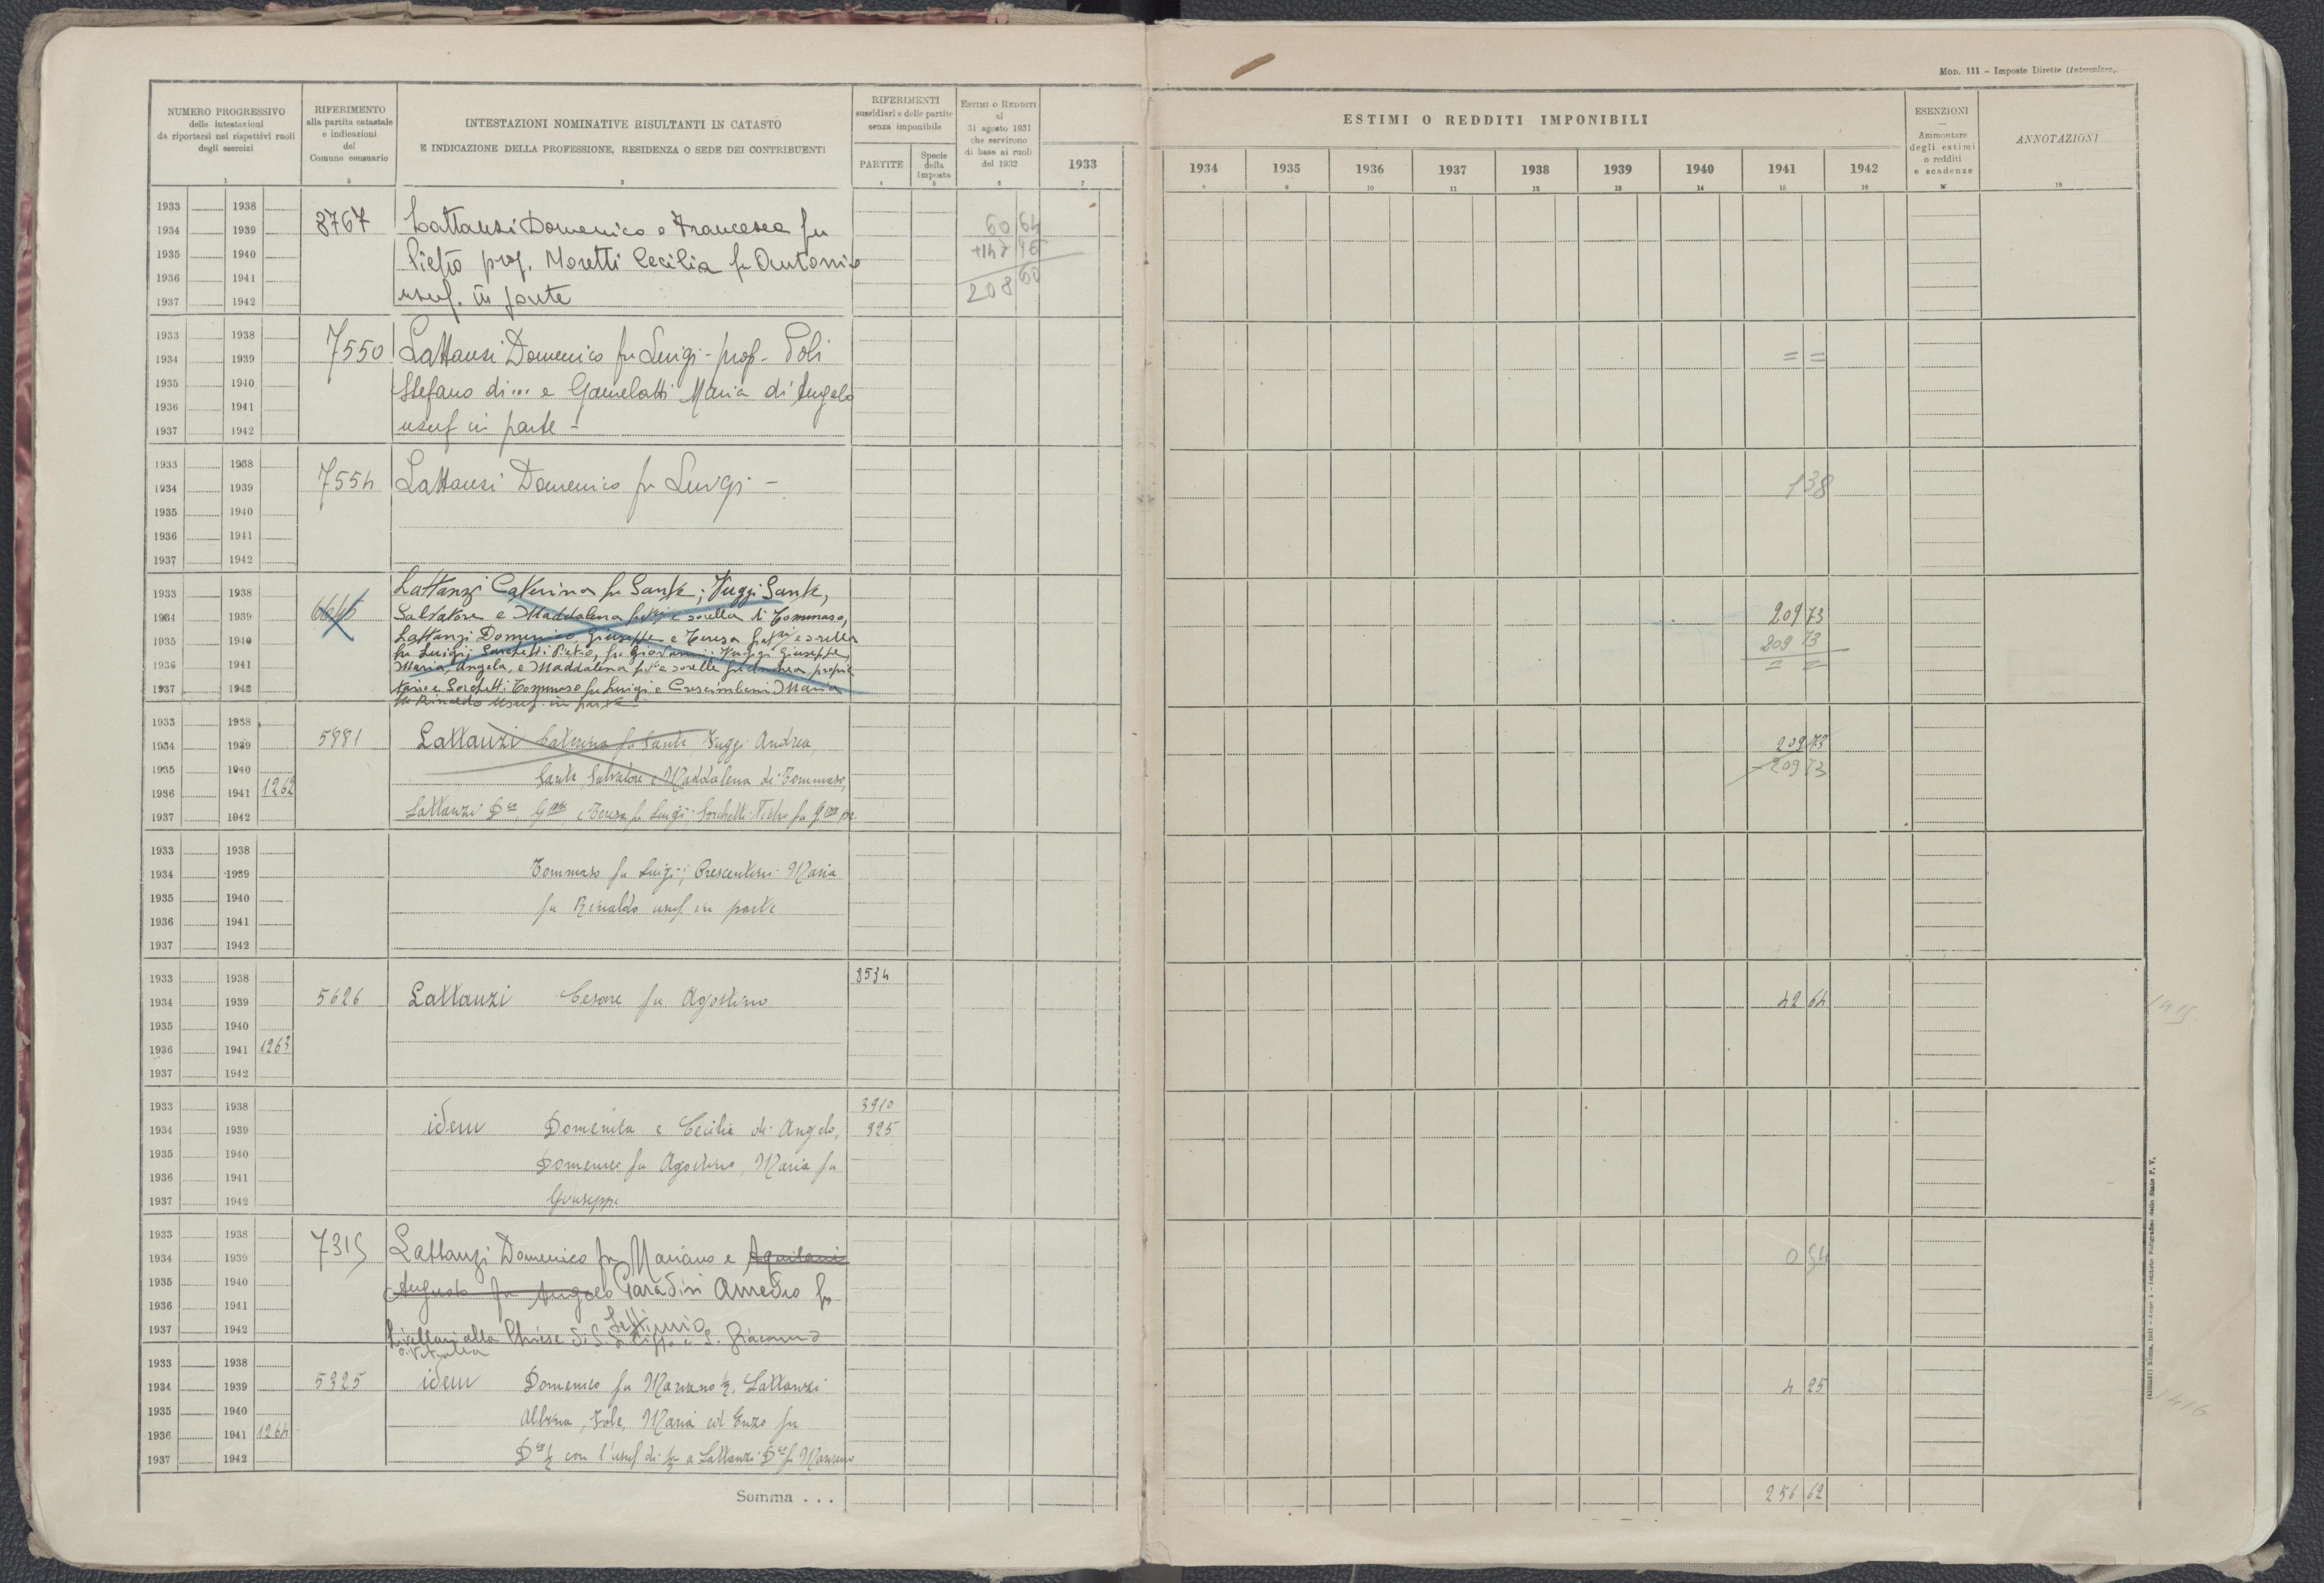 MOD. 111 – Imposte Dirette (Intercalare.
NUMERO PROGRESSIVO
delle intestazioni
da riportarsi nei rispettivi ruoli
degli esercizi
1
RIFERIMENTO
alla partita catastale
e indicazioni
del
Comune censuario
2
INTESTAZIONI NOMINATIVE RISULTANTI IN CATASTO
E INDICAZIONE DELLA PROFESSIONE, RESIDENZA O SEDE DEI CONTRIBUENTI
3
RIFERIMENTI
sussidiari e delle partite
senza imponibile
PARTITE
4
Specie
della
Imposta
5
ESTIMI O REDDITI
al
31 agosto 1931
che servirono
di base ai ruoli
del 1932
6
1933
7
ESTIMI O REDDITI IMPONIBILI
1934 1935 1936 1937 1938 1939 1940 1941 1942
8 9 10 11 12 13 14 15 16
ESENZIONI
—
Ammontare
degli estimi
o redditi
e scadenze
ANNOTAZIONI
18
1933 1938
1934 1939 8767 Lattanzi Domenico e Francesca fu 60 64
1935 1940 Pietro prop. Moretti Cecilia fu Antonio
1936 1941 usuf. in parte 208 60
1937 1942
1933 1938
1934 1939 7550 Lattanzi Domenico fu Luigi - prop - Poli = =
1935 1940 Stefano di ... e Gamelatti Maria di Angelo
1936 1941
1937 1942 usuf in parte -
1933 1938
1934 1939 7554 Lattanzi Domenico fu Luigi - 138
1935 1940
1936 1941
1937 1942
Lattanzi Caterina fu Sante; Fuggi Sante,
1933 1938
1934 1939 Salvatore e Maddalena fr.lli e sorella di Tommaso, 209 73
1935 1940 Lattanzi Domenico, Giuseppe e Teresa fr.lli e sorella 209 73
fu Luigi; Sorchetti Pietro, fu Giovanni; Fuggi Giuseppe,
1936 1941 Maria, Angela, e Maddalena fr.lli e sorelle fu Andrea, proprie = =
1937 1942 tari e Sorchetti Tommaso fu Luigi e Crescimbeni Maria
fu Rinaldo usuf. in parte
1933 1938
1934 1939 5881 Lattanzi Caterina fu Sante Fuggi Andrea, 209 73
1935 1940 Sante Salvatore e Maddalena di Tommaso, - 209 73
1936 1941 1262
1937 1942 Lattanzi D.co, G.ppe e Teresa fu Luigi; Sorchetti Pietro fu
1933 1938
1934 1939 Tommaso fu Luigi; Crescentini Maria
1935 1940 fu Rinaldo usuf. in parte
1936 1941
1937 1942
1933 1938 8534
1934 1939 5626 Lattanzi Cesare fu Agostino 42 64
1935 1940
1936 1941 1263
1937 1942
1933 1938 3910
1934 1939 idem Domenica e Cecilia di Angelo, 925
1935 1940 Domenico fu Agostino, Maria fu
1936 1941
1937 1942 Giuseppe
1933 1938
1934 1939 7315 Lattanzi Domenico fu Mariano e Aquilani 0 54
1935 1940 Augusto fu Angelo Paradisi Amedeo fu
1936 1941 Settimio
1937 1942 Livellari alla Chiesa di S. Filippo e S. Giacomo
di Vetralla
1933 1938
1934 1939 5325 idem Domenico fu Mariano ½, Lattanzi 4 25
1935 1940 Albina, Iole, Maria ed Enzo fu
1936 1941 1264
1937 1942 D.co ½ con l'usuf. di a Lattanzi D.co fu Mariano
Somma . . . 256 62
1415
1416